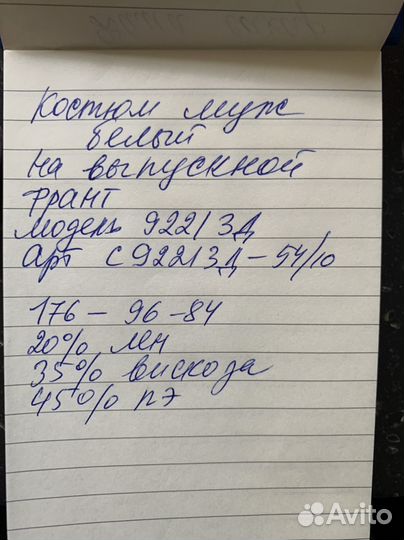 Костюм муж
белый
на выпускной
франт
модель 922/3Д
Арт С922/3Д-54/10
176 - 96 -84
20% лён
35% вискоза
45% пэ
Avito